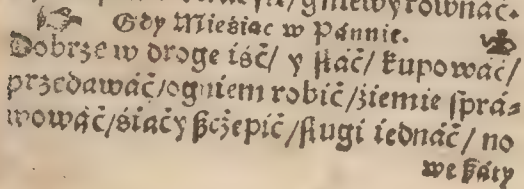 gniewyrownać.
Gdy Mieśiąc w Pánnie.
Dobrze w droge iść/ y ſłáć/ kupowáć/
przedawáć/ogniem robić/źiemie ſpráz
wowáć/śiać y ſzczepić/ſługi iednáć/ no
we ſzáty